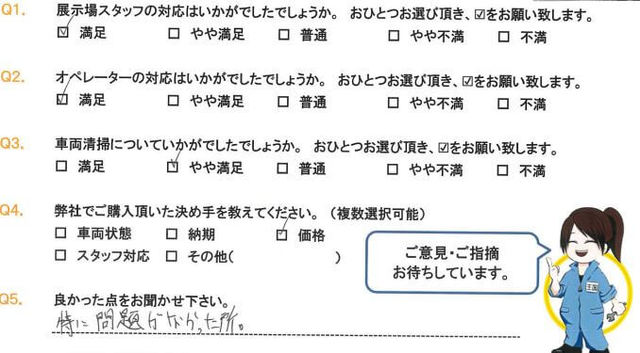 Q1. 展示場スタッフの対応はいかがでしたでしょうか。 おひとつお選び頂き、☑をお願い致します。
☑ 満足 □ やや満足 □ 普通 □ やや不満 □ 不満
Q2. オペレーターの対応はいかがでしたでしょうか。 おひとつお選び頂き、☑をお願い致します。
☑ 満足 □ やや満足 □ 普通 □ やや不満 □ 不満
Q3. 車両清掃についていかがでしたでしょうか。 おひとつお選び頂き、☑をお願い致します。
□ 満足 ☑ やや満足 □ 普通 □ やや不満 □ 不満
Q4. 弊社でご購入頂いた決め手を教えてください。(複数選択可能)
□ 車両状態 □ 納期 ☑ 価格
□ スタッフ対応 □ その他( )
ご意見・ご指摘
お待ちしています。
王国
Q5. 良かった点をお聞かせ下さい。
特に問題がなかった所。